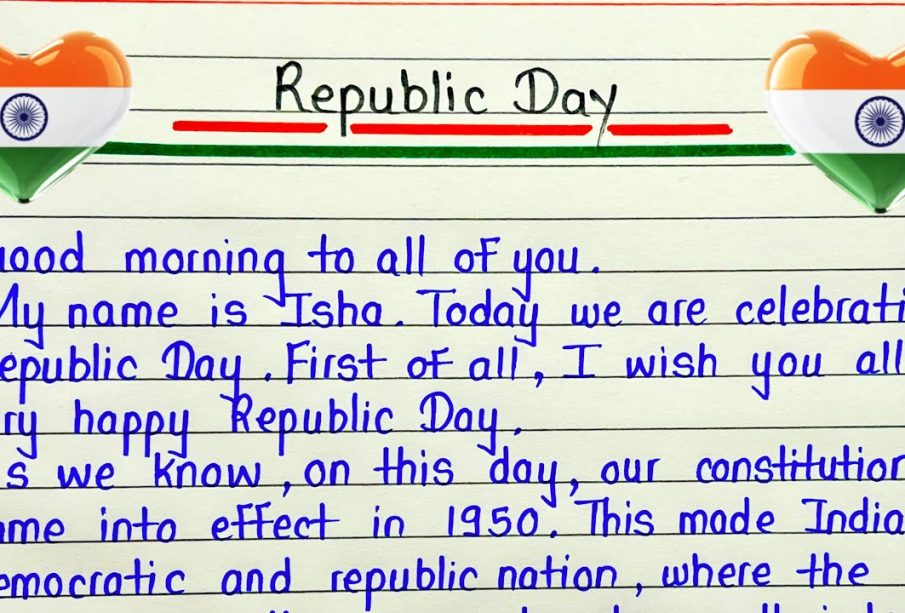 Republic Day
ood morning to all of you.
My name is Isha. Today we are celebrati
epublic Day. First of all, I wish you all
ry happy Republic Day.
s we know, on this day, our constitution
ame into effect in 1950. This made India
emocratic and republic nation, where the